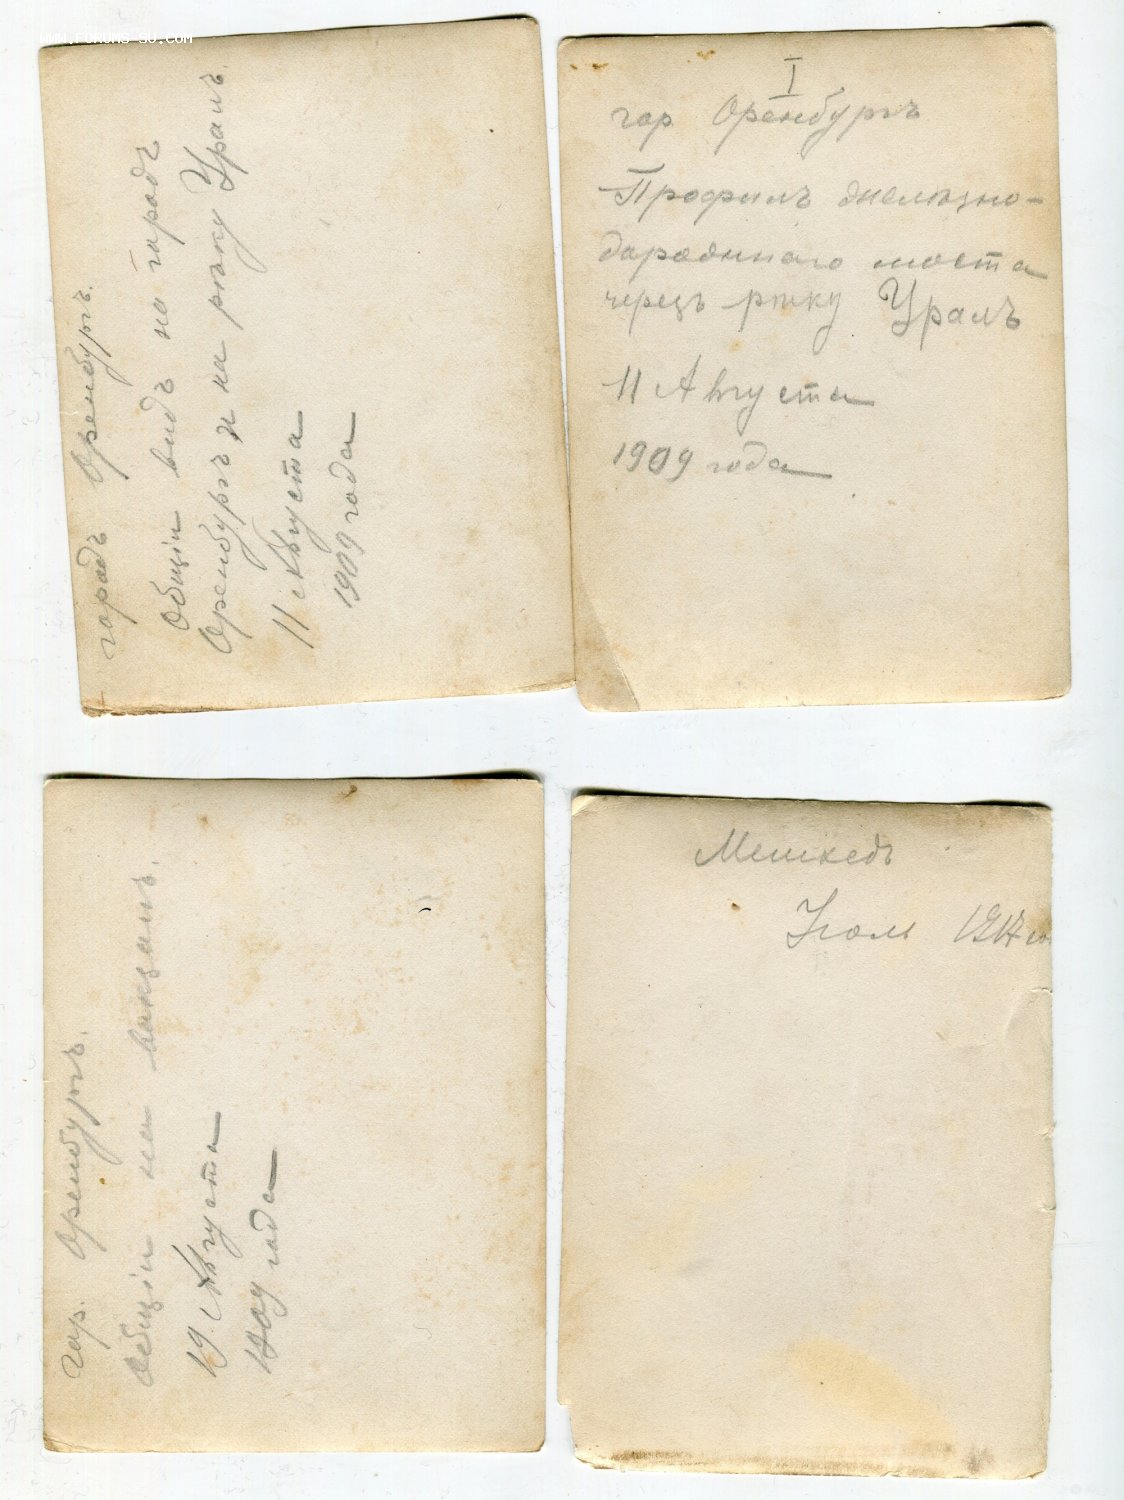 www.forums-su.com
городъ Оренбургъ.
Общiй видъ на городъ
Оренбургъ и на рѣку Уралъ.
11 Августа
1909 года
I
гор Оренбургъ
Профиль желѣзно-
дорожнаго моста
черезъ рѣку Уралъ
11 Августа
1909 года
гор. Оренбургъ.
Общiй на вокзалъ.
19 Августа
1909 года
Мешхедъ
Iюль 1917 го